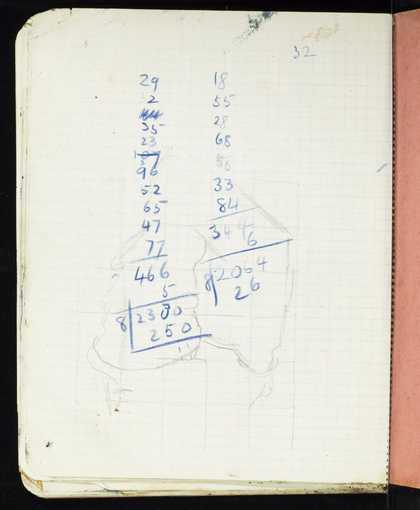 32
29
2
35
23
96
52
65
47
77
466
5
8 2380
250
18
55
28
68
56
33
84
344
6
8 2064
26